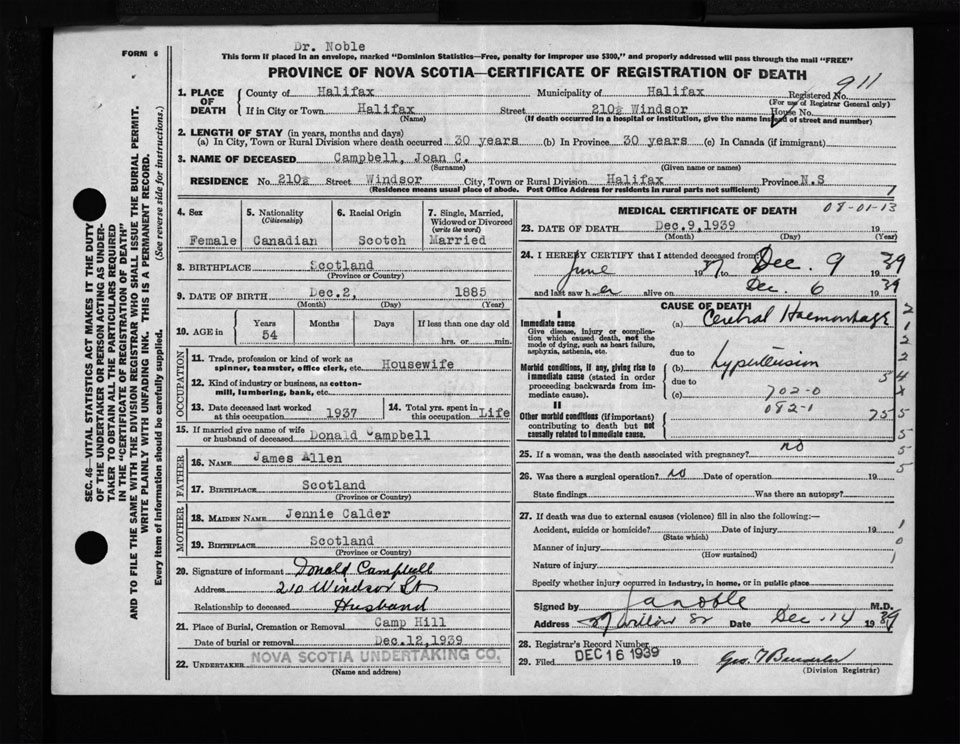 Dr. Noble
FORM 6
This form if placed in an envelope, marked "Dominion Statistics—Free, penalty for improper use $300," and properly addressed will pass through the mail "FREE"
PROVINCE OF NOVA SCOTIA—CERTIFICATE OF REGISTRATION OF DEATH
911
1. PLACE OF DEATH
County of Halifax Municipality of Halifax Registered No.
(For use of Registrar General only)
If in City or Town Halifax Street 210½ Windsor House No.
(Name) (If death occurred in a hospital or institution, give the name instead of street and number)
2. LENGTH OF STAY (in years, months and days)
(a) In City, Town or Rural Division where death occurred 30 years (b) In Province 30 years (c) In Canada (if immigrant)
3. NAME OF DECEASED Campbell, Joan C.
(Surname) (Given name or names)
RESIDENCE No. 210½ Street Windsor City, Town or Rural Division Halifax Province N.S
(Residence means usual place of abode. Post Office Address for residents in rural parts not sufficient)
4. Sex
Female
5. Nationality
(Citizenship)
Canadian
6. Racial Origin
Scotch
7. Single, Married, Widowed or Divorced
(write the word)
Married
8. BIRTHPLACE Scotland
(Province or Country)
9. DATE OF BIRTH Dec.2, 1885
(Month) (Day) (Year)
10. AGE in
Years Months Days If less than one day old
54 hrs. or min.
OCCUPATION
11. Trade, profession or kind of work as spinner, teamster, office clerk, etc. Housewife
12. Kind of industry or business, as cotton-mill, lumbering, bank, etc.
13. Date deceased last worked at this occupation 1937
14. Total yrs. spent in this occupation Life
15. If married give name of wife or husband of deceased Donald Campbell
FATHER
16. NAME James Allen
17. BIRTHPLACE Scotland
(Province or Country)
MOTHER
18. MAIDEN NAME Jennie Calder
19. BIRTHPLACE Scotland
(Province or Country)
20. Signature of informant Donald Campbell
Address 210 Windsor St
Relationship to deceased Husband
21. Place of Burial, Cremation or Removal Camp Hill
Date of burial or removal Dec.12,1939
22. UNDERTAKER NOVA SCOTIA UNDERTAKING CO.
(Name and address)
MEDICAL CERTIFICATE OF DEATH 08-01-13
23. DATE OF DEATH Dec.9,1939 19
(Month) (Day) (Year)
24. I HEREBY CERTIFY that I attended deceased from:
June 19 37 to Dec. 9 19 39
and last saw h er alive on Dec. 6 19 39
CAUSE OF DEATH
I
Immediate cause
Give disease, injury or complication which caused death, not the mode of dying, such as heart failure, asphyxia, asthenia, etc.
(a) Cerebral Haemorrhage
due to
Morbid conditions, if any, giving rise to immediate cause (stated in order proceeding backwards from immediate cause).
(b) Hypertension
due to
(c) 702-0
082-1
II
Other morbid conditions (if important) contributing to death but not causally related to immediate cause.
25. If a woman, was the death associated with pregnancy? no
26. Was there a surgical operation? no Date of operation 19
State findings Was there an autopsy?
27. If death was due to external causes (violence) fill in also the following:—
Accident, suicide or homicide? Date of injury 19
(State which)
Manner of injury
(How sustained)
Nature of injury
Specify whether injury occurred in industry, in home, or in public place
Signed by M.D.
Address Date Dec. 14 19 39
28. Registrar's Record Number
29. Filed DEC 16 1939 19
(Division Registrar)
SEC. 46—VITAL STATISTICS ACT MAKES IT THE DUTY
OF THE UNDERTAKER OR PERSON ACTING AS UNDER-
TAKER TO OBTAIN ALL THE PARTICULARS REQUIRED
IN THE "CERTIFICATE OF REGISTRATION OF DEATH"
AND TO FILE THE SAME WITH THE DIVISION REGISTRAR WHO SHALL ISSUE THE BURIAL PERMIT.
WRITE PLAINLY WITH UNFADING INK. THIS IS A PERMANENT RECORD.
Every item of information should be carefully supplied. (See reverse side for instructions.)